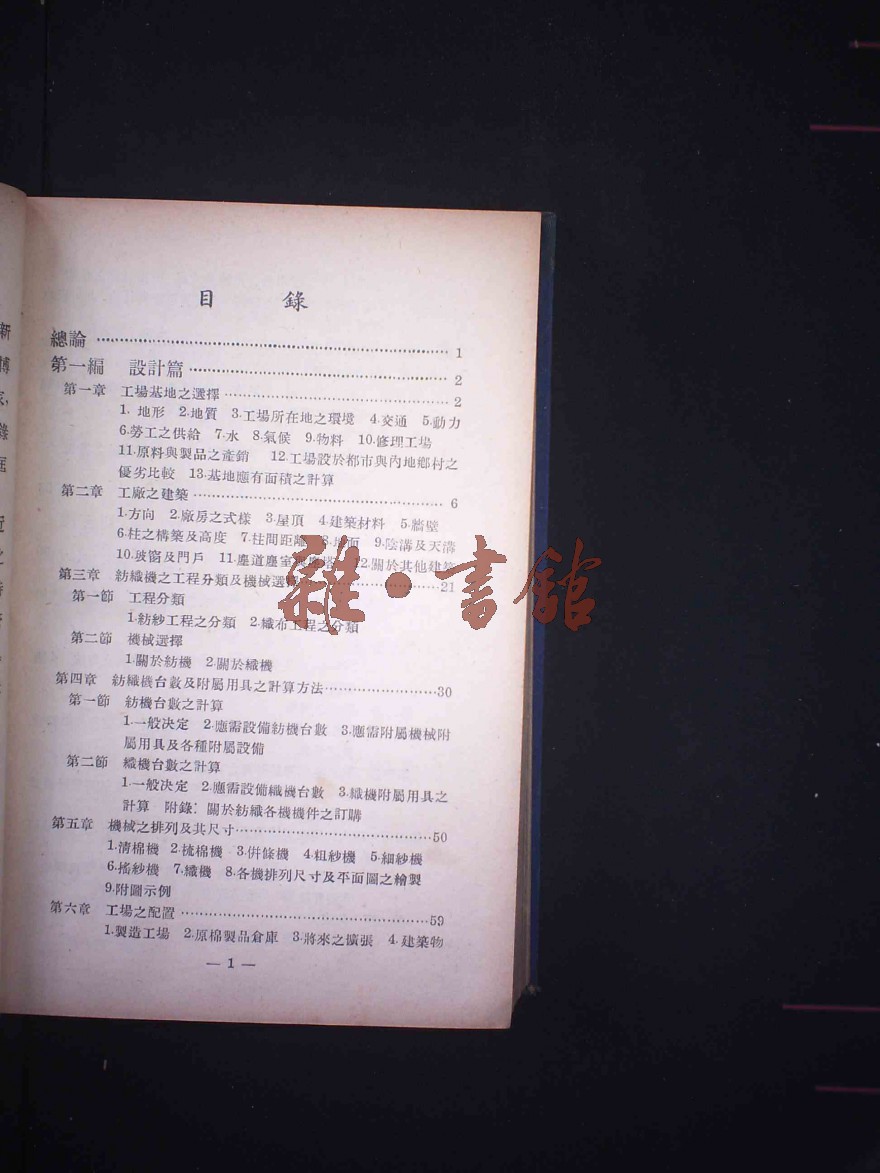 目　錄
總論……………………………………………………1
第一編　設計篇………………………………………2
第一章　工場基地之選擇……………………………2
1. 地形 2.地質 3.工場所在地之環境 4.交通 5.動力
6.勞工之供給 7.水 8.氣候 9.物料 10.修理工場
11.原料與製品之產銷 12.工場設於都市與內地鄉村之
優劣比較 13.基地應有面積之計算
第二章　工廠之建築……………………………………6
1.方向 2.廠房之式樣 3.屋頂 4.建築材料 5.牆壁
6.柱之構築及高度 7.柱間距離 8.地面 9.陰溝及天溝
10.玻窗及門戶 11.塵道塵室 12.關於其他建築
第三章　紡織機之工程分類及機械選擇………………21
第一節　工程分類
1.紡紗工程之分類 2.織布工程之分類
第二節　機械選擇
1.關於紡機 2.關於織機
第四章　紡織機台數及附屬用具之計算方法…………30
第一節　紡機台數之計算
1.一般決定 2.應需設備紡機台數 3.應需附屬機械附
屬用具及各種附屬設備
第二節　織機台數之計算
1.一般決定 2.應需設備織機台數 3.織機附屬用具之
計算 附錄：關於紡織各機機件之訂購
第五章　機械之排列及其尺寸…………………………50
1.清棉機 2.梳棉機 3.併條機 4.粗紗機 5.細紗機
6.搖紗機 7.織機 8.各機排列尺寸及平面圖之繪製
9.附圖示例
第六章　工場之配置……………………………………59
1.製造工場 2.原棉製品倉庫 3.將來之擴張 4.建築物
— 1 —
雜·書館